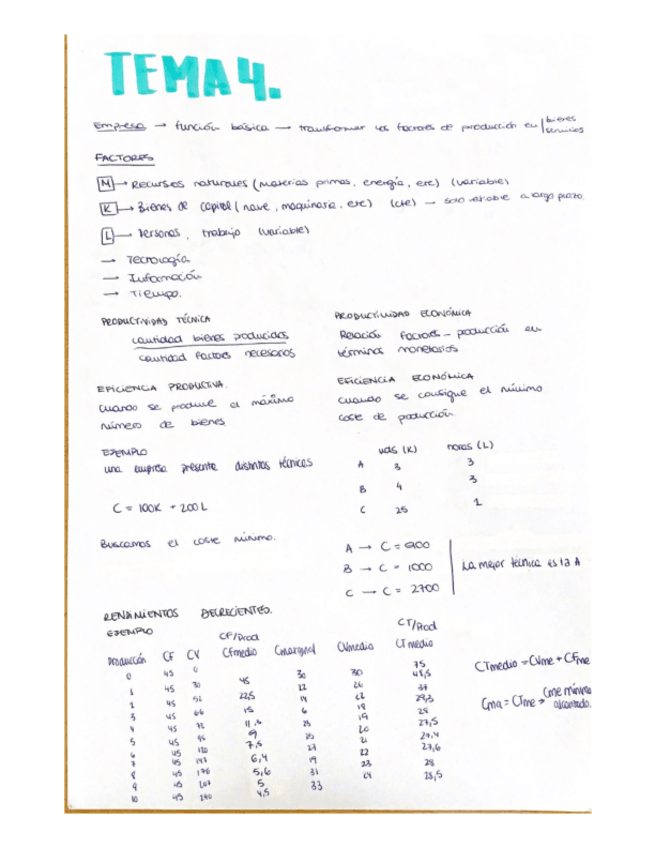 TEMA 4.
Empresa → función básica → transformar los factores de producción en | bienes servicios
FACTORES
M → Recursos naturales (materias primas, energía, etc) (variable)
K → Bienes de capital (nave, maquinaria, etc) (cte) → solo variable a largo plazo
L → Personas, trabajo (variable)
→ Tecnología
→ Información
→ Tiempo.
PRODUCTIVIDAD TÉCNICA
cantidad bienes producidos
cantidad factores necesarios
PRODUCTIVIDAD ECONÓMICA
Relación factores - producción en
términos monetarios
EFICIENCIA PRODUCTIVA.
cuando se produce el máximo
número de bienes
EFICIENCIA ECONÓMICA
cuando se consigue el mínimo
coste de producción.
EJEMPLO
una empresa presenta distintas técnicas
C = 100K + 200L
Buscamos el coste mínimo.
uds (K) horas (L)
A 3 3
B 4 3
C 25 1
A → C = 900
B → C = 1000
C → C = 2700
La mejor técnica es la A
RENDIMIENTOS DECRECIENTES.
EJEMPLO
CF/Prod CT/Prod
Producción CF CV CFmedio Cmarginal CVmedio CTmedio
0 45 0
1 45 30 45 30 30 75
2 45 52 22,5 22 26 48,5
3 45 66 15 14
4 45 72 6 18 29,3
5 45 9 19 28
6 45 120 7,5 20 27,5
7 45 6,4 27 21 27,4
8 45 176 5,6 22 27,6
9 45 207 5 31 23 28
10 45 240 4,5 33 24 28,5
CTmedio = CVme + CFme
Cma = CTme → Cme mínimo
alcanzado.